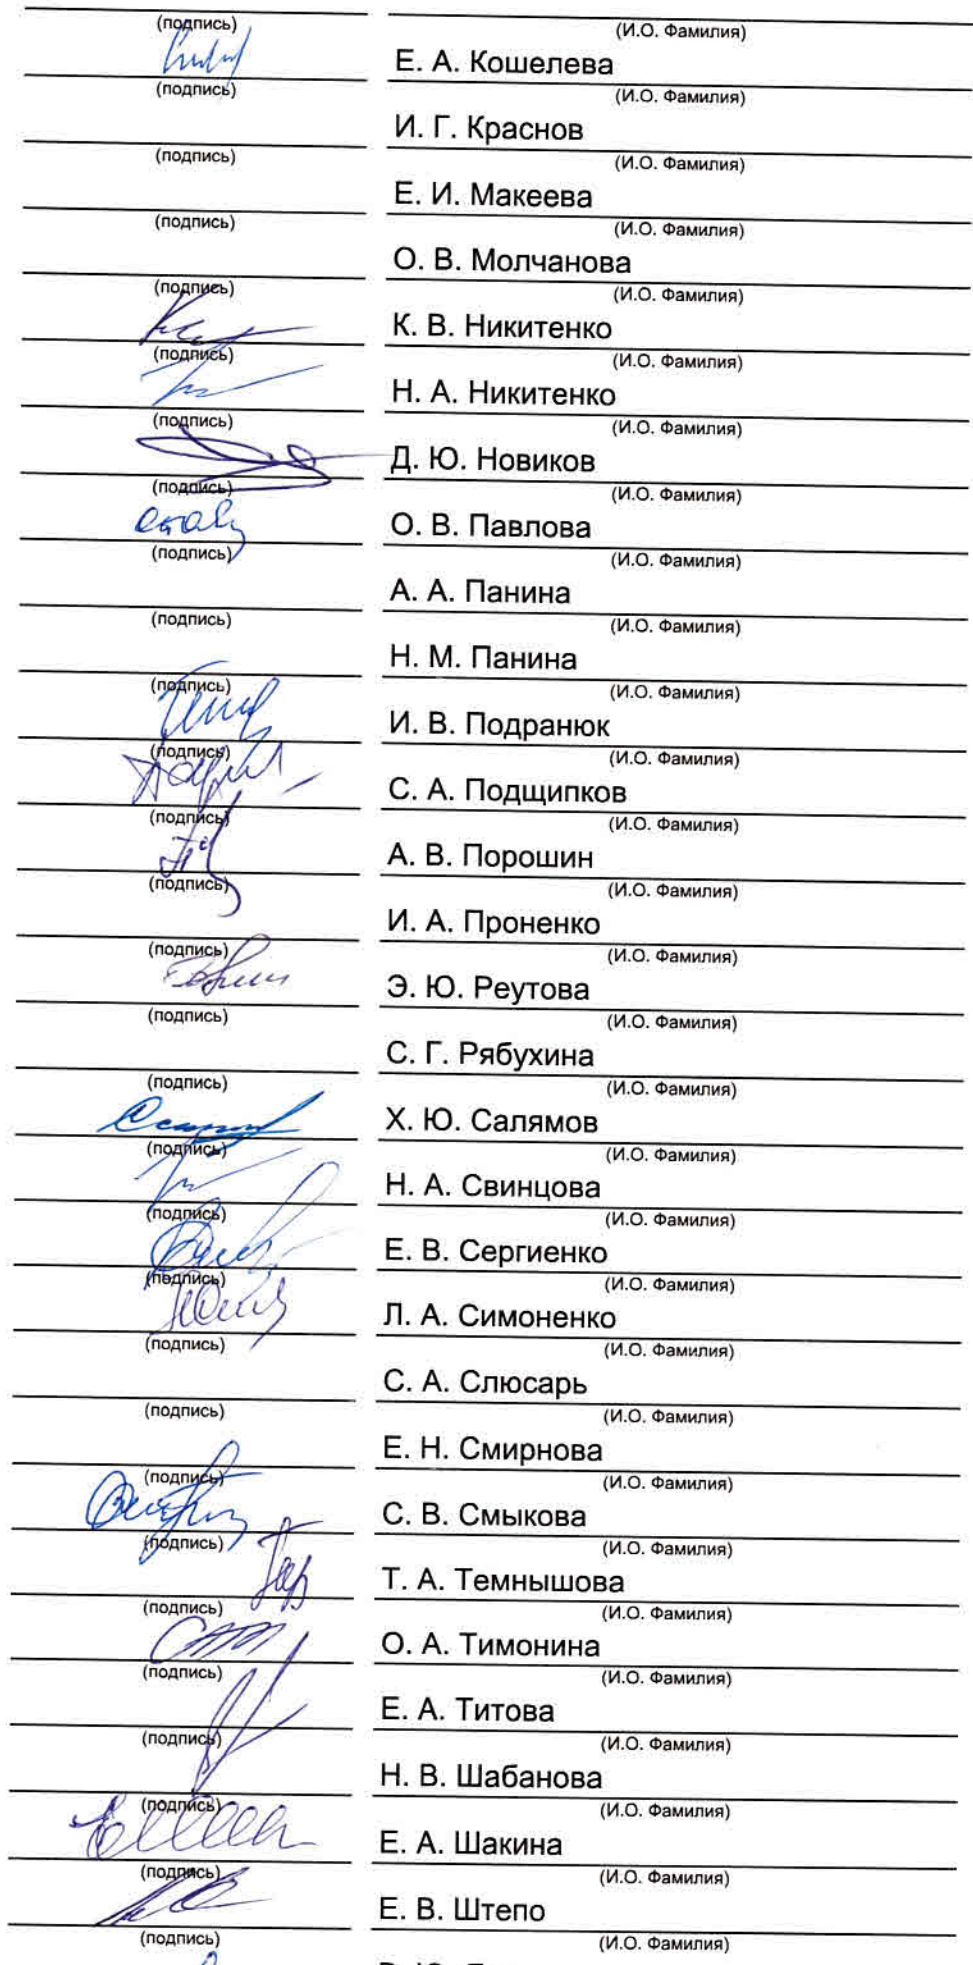 (подпись) (И.О. Фамилия)
Е. А. Кошелева
(подпись) (И.О. Фамилия)
И. Г. Краснов
(подпись) (И.О. Фамилия)
Е. И. Макеева
(подпись) (И.О. Фамилия)
О. В. Молчанова
(подпись) (И.О. Фамилия)
К. В. Никитенко
(подпись) (И.О. Фамилия)
Н. А. Никитенко
(подпись) (И.О. Фамилия)
Д. Ю. Новиков
(подпись) (И.О. Фамилия)
О. В. Павлова
(подпись) (И.О. Фамилия)
А. А. Панина
(подпись) (И.О. Фамилия)
Н. М. Панина
(подпись) (И.О. Фамилия)
И. В. Подранюк
(подпись) (И.О. Фамилия)
С. А. Подщипков
(подпись) (И.О. Фамилия)
А. В. Порошин
(подпись) (И.О. Фамилия)
И. А. Проненко
(подпись) (И.О. Фамилия)
Э. Ю. Реутова
(подпись) (И.О. Фамилия)
С. Г. Рябухина
(подпись) (И.О. Фамилия)
Х. Ю. Салямов
(подпись) (И.О. Фамилия)
Н. А. Свинцова
(подпись) (И.О. Фамилия)
Е. В. Сергиенко
(подпись) (И.О. Фамилия)
Л. А. Симоненко
(подпись) (И.О. Фамилия)
С. А. Слюсарь
(подпись) (И.О. Фамилия)
Е. Н. Смирнова
(подпись) (И.О. Фамилия)
С. В. Смыкова
(подпись) (И.О. Фамилия)
Т. А. Темнышова
(подпись) (И.О. Фамилия)
О. А. Тимонина
(подпись) (И.О. Фамилия)
Е. А. Титова
(подпись) (И.О. Фамилия)
Н. В. Шабанова
(подпись) (И.О. Фамилия)
Е. А. Шакина
(подпись) (И.О. Фамилия)
Е. В. Штепо
(подпись) (И.О. Фамилия)